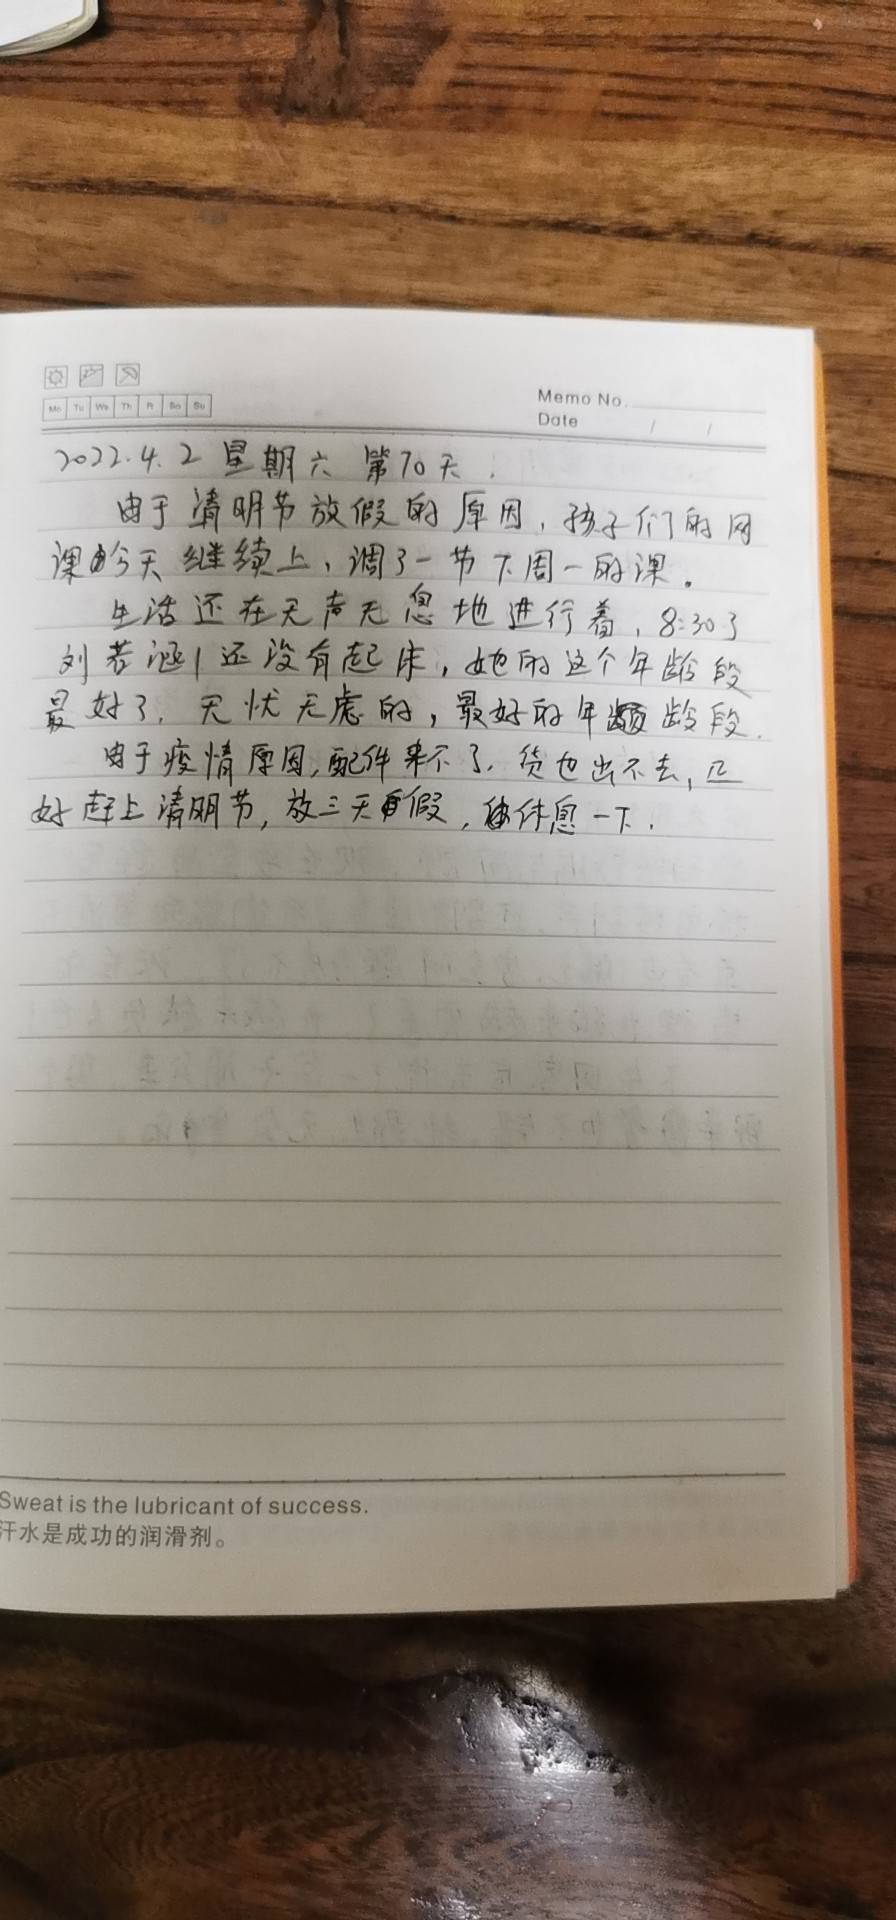 Memo No.
Mo Tu We Th Fr Sa Su
Date / /
2022.4.2 星期六 第70天.
由于清明节放假的原因,孩子们的网
课今天继续上,调了一节下周一的课。
生活还在无声无息地进行着,8:30了
刘若涵还没有起床,她的这个年龄段
最好了.无忧无虑的,最好的年龄段.
由于疫情原因,配件来不了.货也出不去,正
好赶上清明节,放三天假,休息一下.
Sweat is the lubricant of success.
汗水是成功的润滑剂。